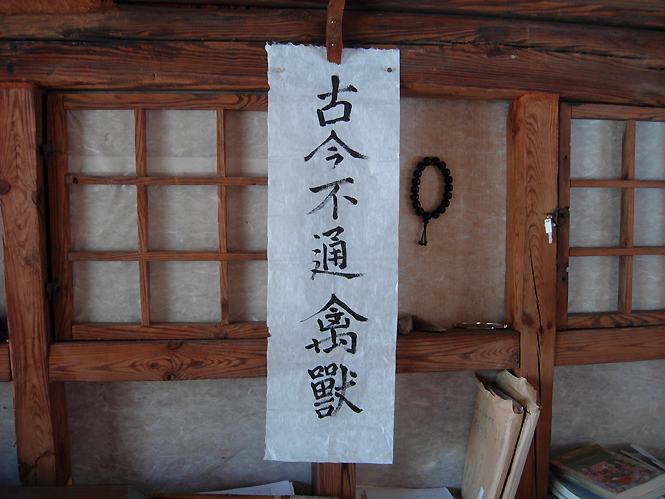 古今不通禽獸